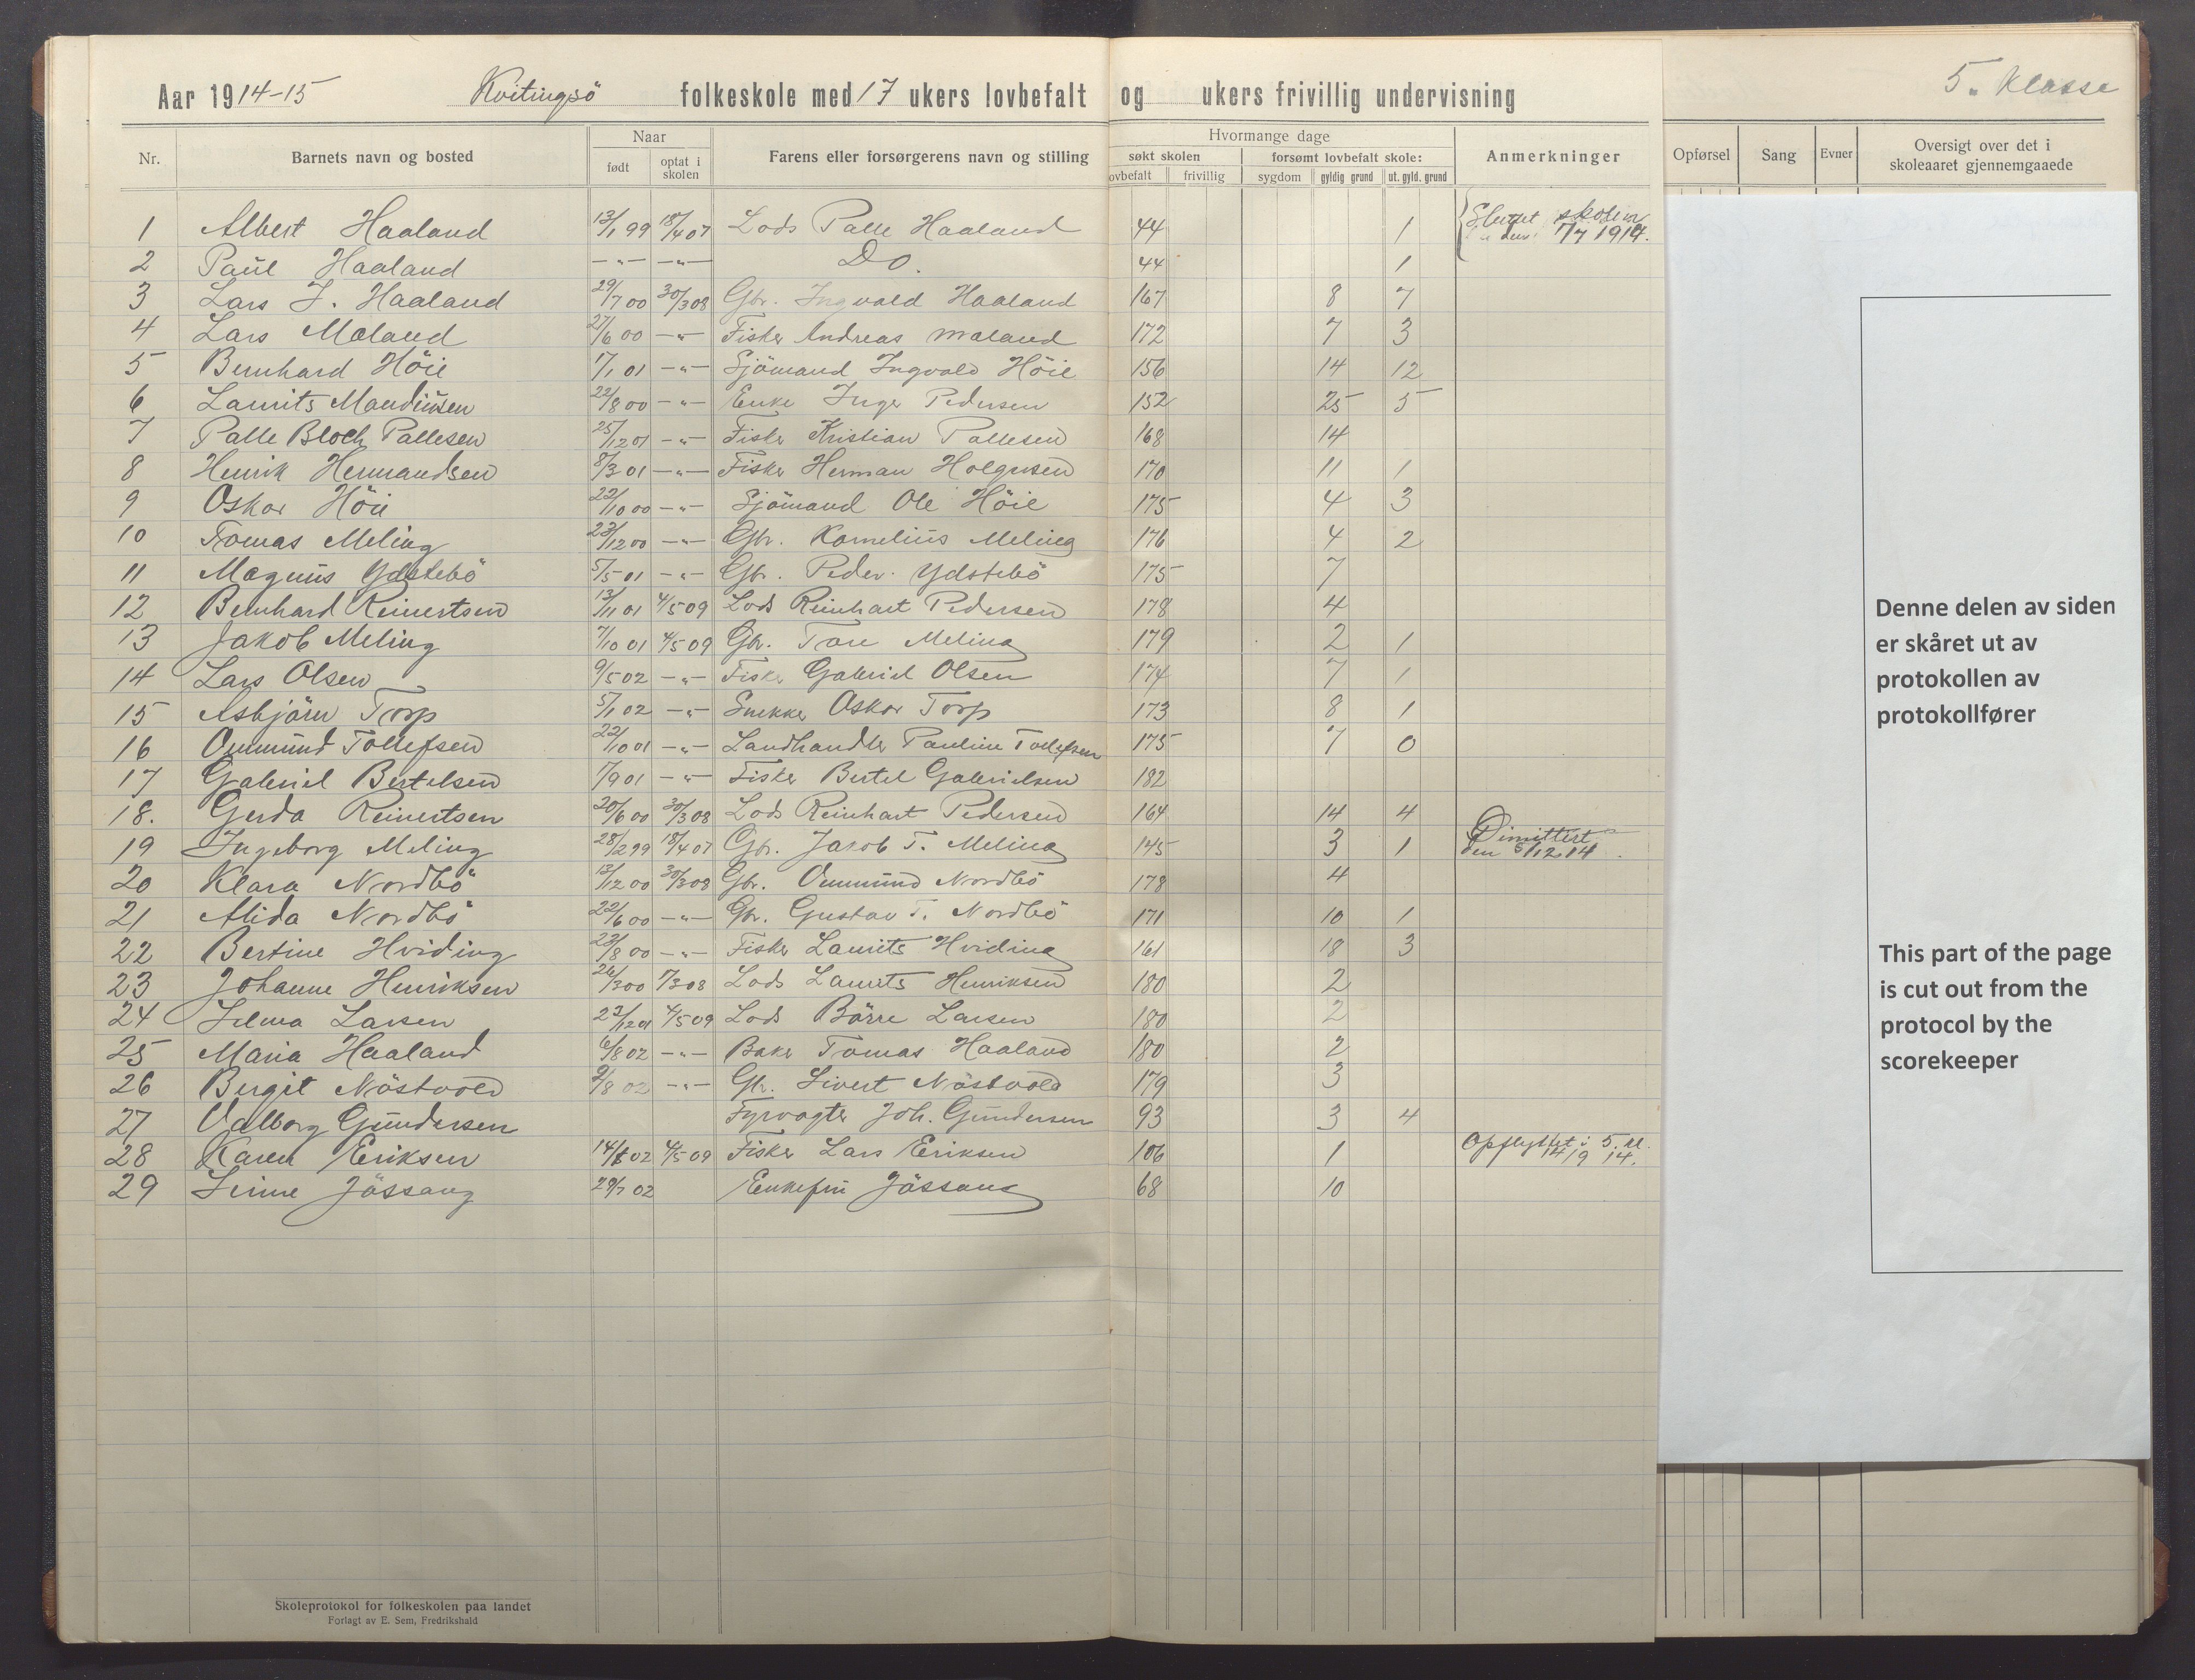 5. Klasse
Aar 1914-15 Kvitingsö folkeskole med 17 ukers lovbefalt og ukers frivillig undervisning
Nr. Barnets navn og bosted Naar født optat i skolen Farens eller forsørgerens navn og stilling Hvormange dage søkt skolen ovbefalt frivillig forsømt lovbefalt skole: sygdom gyldig grund ut. gyld. grund Anmerkninger Opførsel Sang Evner Oversigt over det i skoleaaret gjennemgaaede
1 Albert Haaland 13/1 99 18/4 07 Lods Palle Haaland 44 1 Sluttet skolen den 1/7 1914.
2 Paul Haaland -"- -"- Do. 44 1
3 Lars J. Haaland 29/7 00 30/3 08 Gbr. Ingvald Haaland 167 8 7
4 Lars Maland 27/6 00 -"- Fisker Andreas Maland 172 7 3
5 Bernhard Höie 17/1 01 -"- Sjömand Ingvald Höie 156 14 12
6 Laurits Maudiusen 22/8 00 -"- Enke Inger Pedersen 152 25 5
7 Palle Bloch Pallesen 25/12 01 -"- Fisker Kristian Pallesen 168 14
8 Henrik Hermandsen 8/3 01 -"- Fisker Herman Holgersen 170 11 1
9 Oskar Höie 22/10 00 -"- Sjömand Ole Höie 175 4 3
10 Tomas Meling 23/12 00 -"- Gbr. Kornelius Meling 176 4 2
11 Magnus Ydstebö 5/5 01 -"- Gbr. Peder Ydstebö 175 7
12 Bernhard Reinertsen 13/11 01 4/5 09 Lods Reinhart Pedersen 178 4
13 Jakob Meling 7/10 01 4/5 09 Gbr. Tore Meling 179 2 1
14 Lars Olsen 9/5 02 -"- Fisker Gabriel Olsen 174 7 1
15 Asbjörn Torp 5/1 02 -"- Snekker Oskar Torp 173 8 1
16 Ommund Tollefsen 22/10 01 -"- Landhandler Pauline Tollefsen 175 7 0
17 Gabriel Bertelsen 7/9 01 -"- Fisker Bertel Gabrielsen 182
18. Gerda Reinertsen 20/6 00 30/3 08 Lods Reinhart Pedersen 164 14 4
19 Ingeborg Meling 28/2 99 18/4 07 Gbr. Jakob T. Meling 145 3 1 Dimittert den 5/12 14.
20 Klara Nordbö 13/12 00 30/3 08 Gbr. Ommund Nordbö 178 4
21 Alida Nordbö 22/6 00 -"- Gbr. Gustav T. Nordbö 171 10 1
22 Bertine Hviding 23/8 00 -"- Fisker Laurits Hviding 161 18 3
23 Johanne Henriksen 26/3 00 7/3 08 Lods Laurits Henriksen 180 2
24 Jelma Larsen 23/12 01 4/5 09 Lods Börre Larsen 180 2
25 Maria Haaland 6/8 02 -"- Baker Tomas Haaland 180 2
26 Bergit Nöstvold 9/8 02 -"- Gbr. Sivert Nöstvold 179 3
27 Valborg Gundersen Fyrvogter Joh. Gundersen 93 3 4
28 Karen Eriksen 14/5 02 4/5 09 Fisker Lars Eriksen 106 1 Opflyttet i 5. kl. 14/9 14.
29 Jössang 29/7 02 Enkefru Jössang 68 10
Denne delen av siden
er skåret ut av
protokollen av
protokollfører
This part of the page
is cut out from the
protocol by the
scorekeeper
Skoleprotokol for folkeskolen paa landet
Forlagt av E. Sem, Fredrikshald